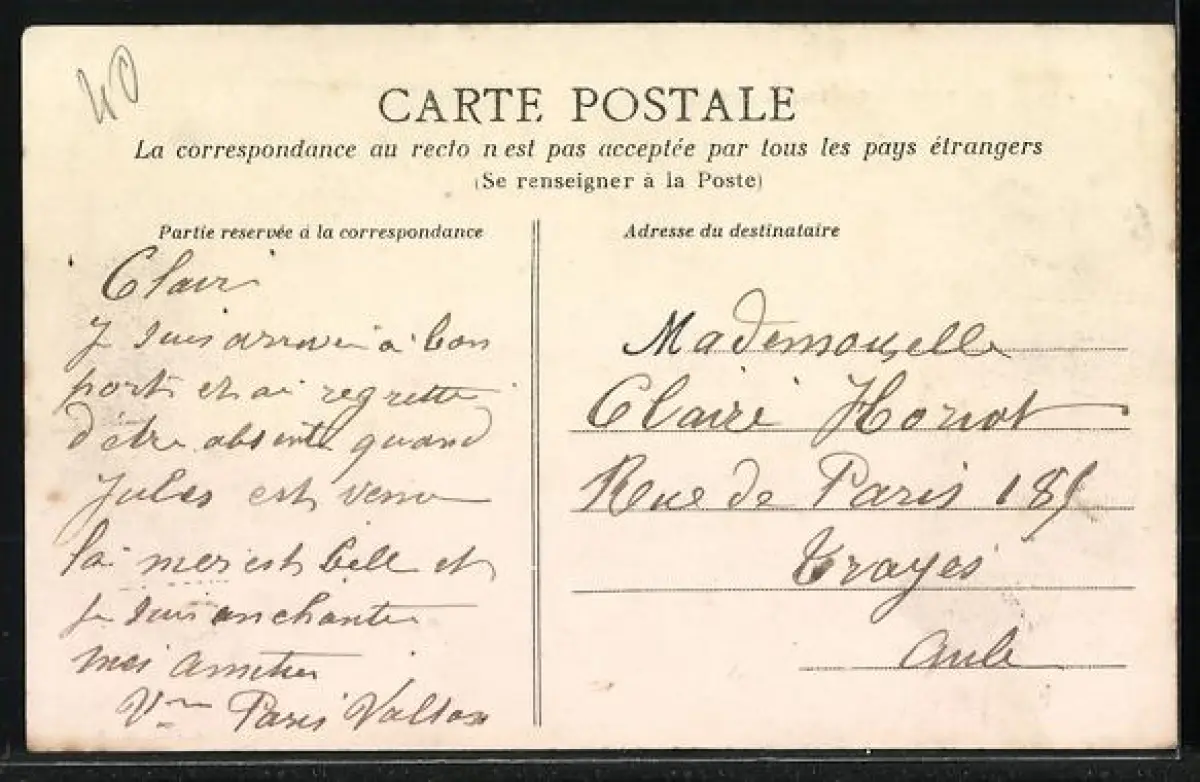 40
CARTE POSTALE
La correspondance au recto n'est pas acceptée par tous les pays étrangers
(Se renseigner à la Poste)
Partie reservée à la correspondance
Adresse du destinataire
Clair
Je suis arrivei a bon
port et ai regretté
d'être absente quand
Jules est venu
la mer est belle et
je suis anchante
mes amities
Vve Paris Valton
Mademoiselle
Claire Horiot
Rue de Paris 185
Troyes
Aube